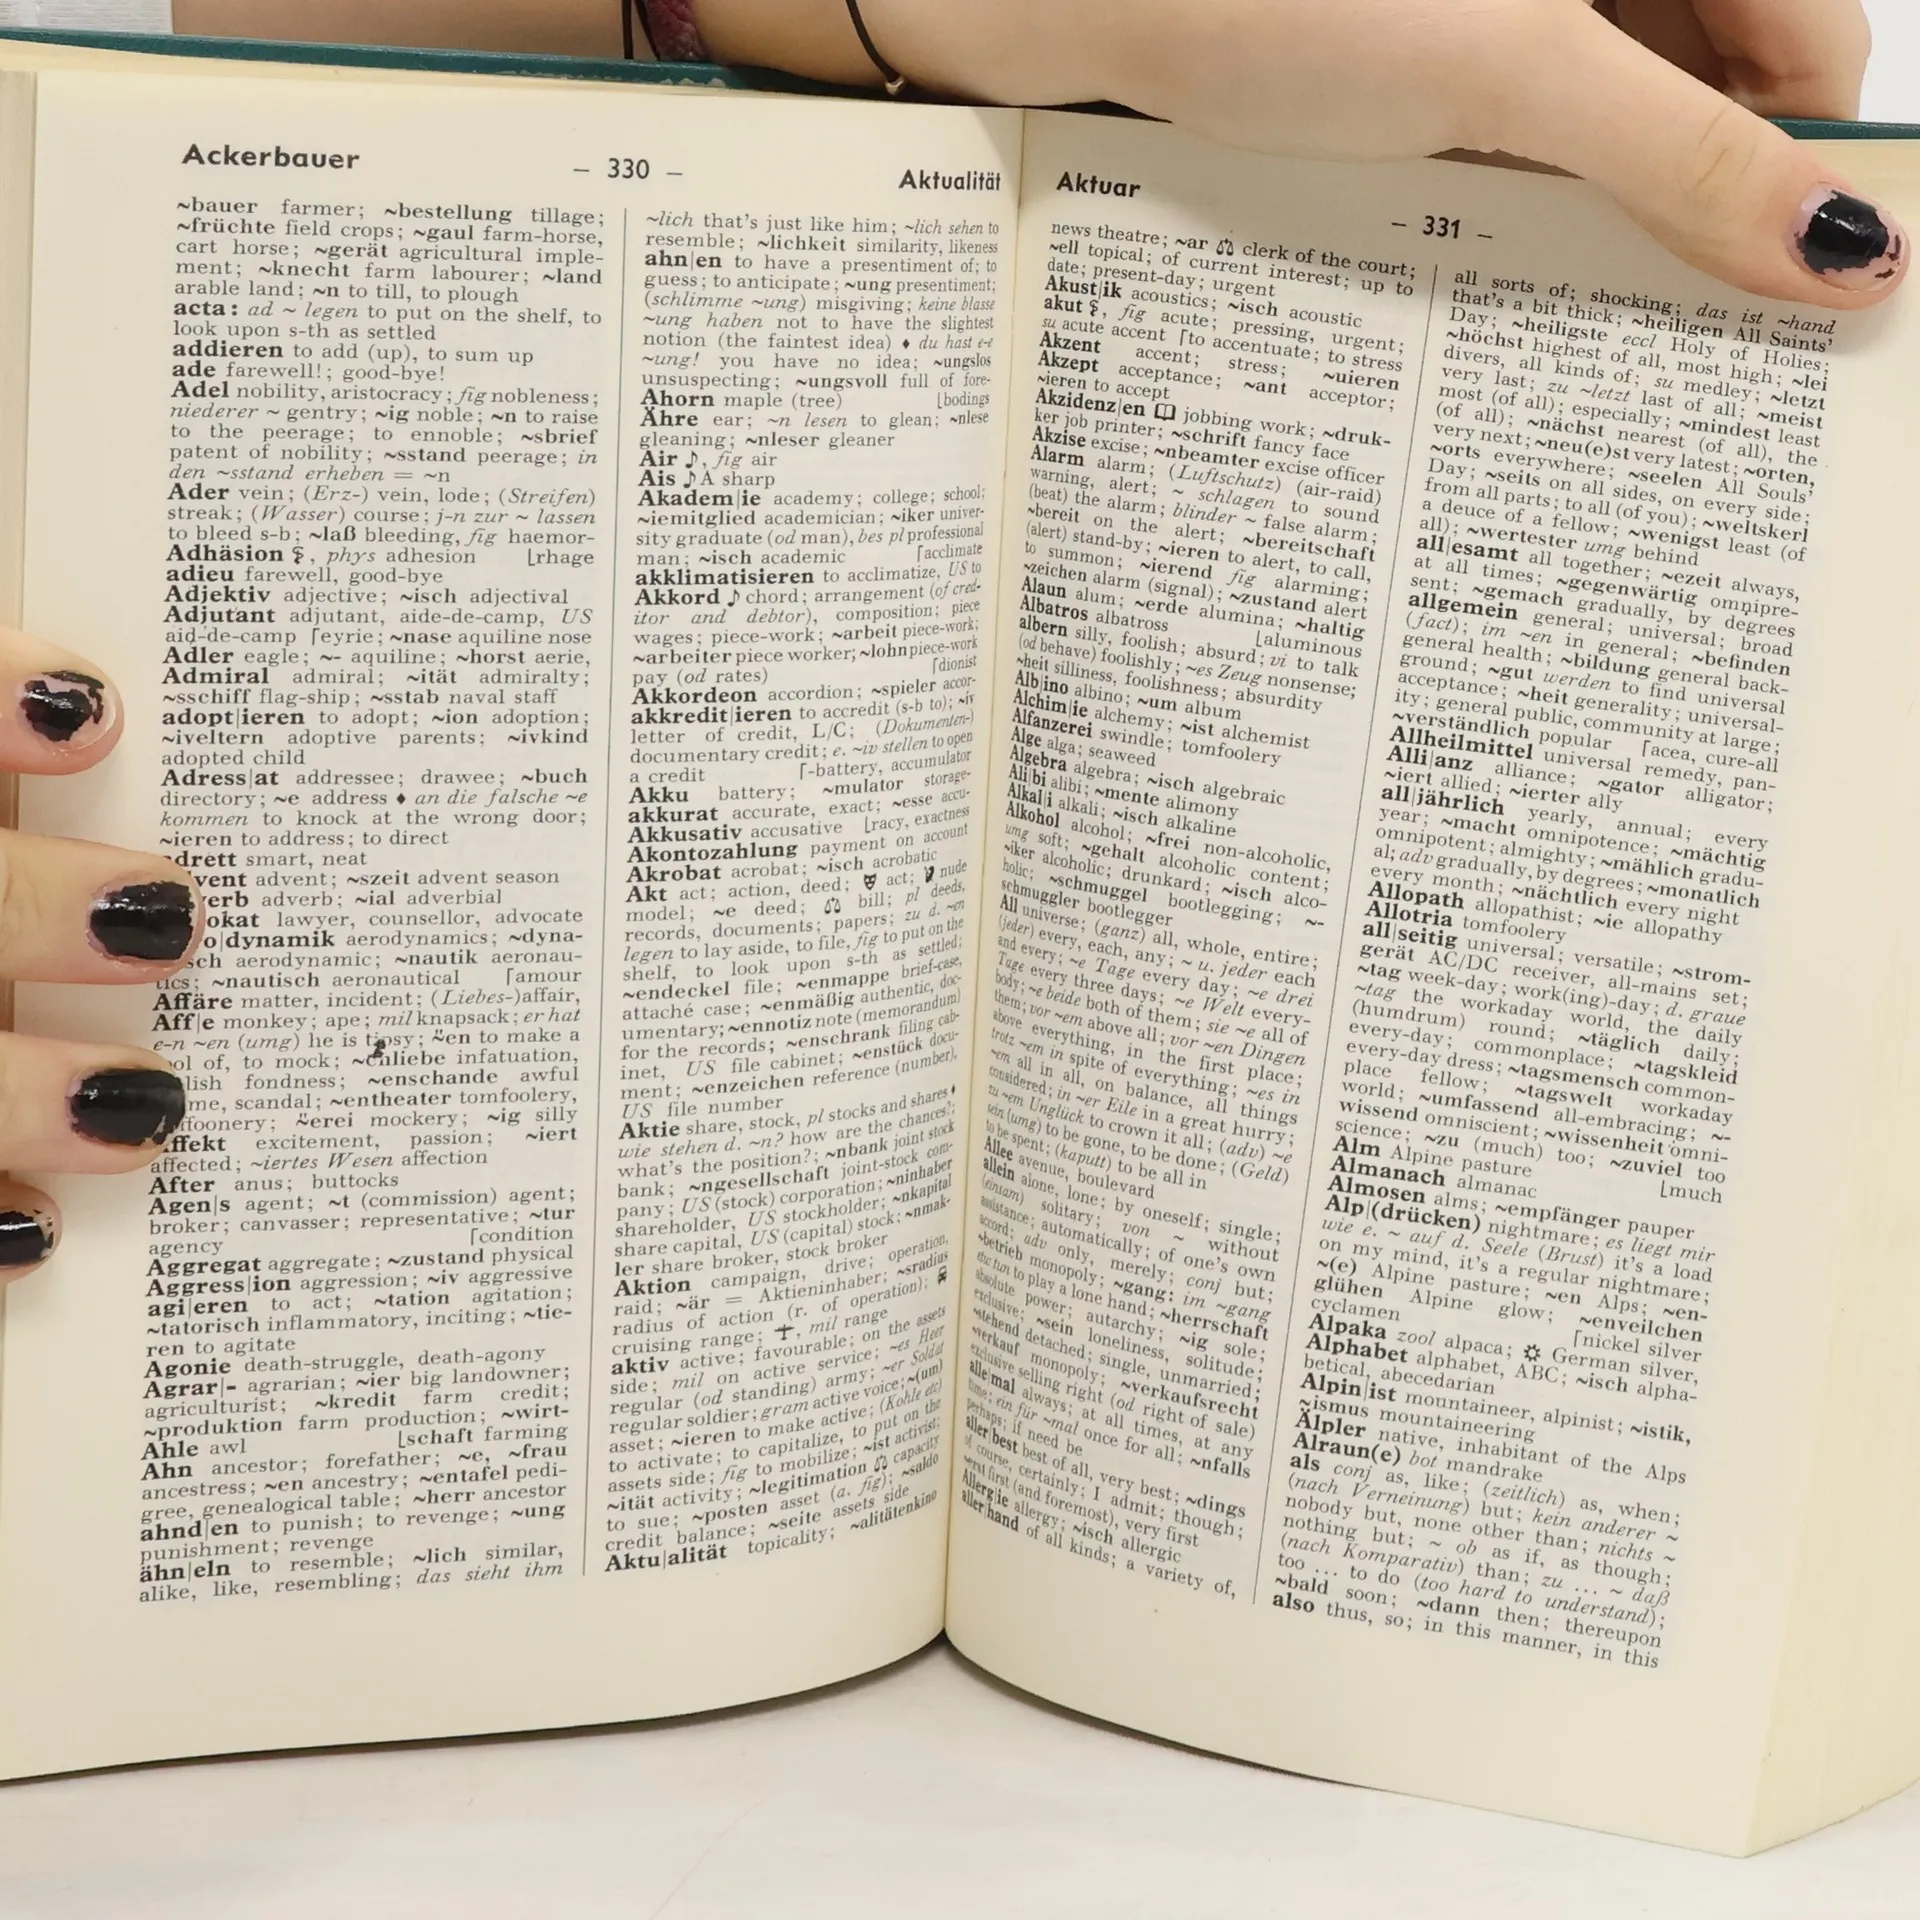 Ackerbauer
– 330 –
Aktualität
~bauer farmer; ~bestellung tillage;
~früchte field crops; ~gaul farm-horse,
cart horse; ~gerät agricultural imple-
ment; ~knecht farm labourer; ~land
arable land; ~n to till, to plough
acta: ad ~ legen to put on the shelf, to
look upon s-th as settled
addieren to add (up), to sum up
ade farewell!; good-bye!
Adel nobility, aristocracy; fig nobleness;
niederer ~ gentry; ~ig noble; ~n to raise
to the peerage; to ennoble; ~sbrief
patent of nobility; ~sstand peerage; in
den ~sstand erheben = ~n
Ader vein; (Erz-) vein, lode; (Streifen)
streak; (Wasser) course; j-n zur ~ lassen
to bleed s-b; ~laß bleeding, fig haemor-
Adhäsion ⚕, phys adhesion ⌊rhage
adieu farewell, good-bye
Adjektiv adjective; ~isch adjectival
Adjutant adjutant, aide-de-camp, US
aid-de-camp ⌈eyrie; ~nase aquiline nose
Adler eagle; ~- aquiline; ~horst aerie,
Admiral admiral; ~ität admiralty;
~sschiff flag-ship; ~sstab naval staff
adopt|ieren to adopt; ~ion adoption;
~iveltern adoptive parents; ~ivkind
adopted child
Adress|at addressee; drawee; ~buch
directory; ~e address ♦ an die falsche ~e
kommen to knock at the wrong door;
~ieren to address; to direct
drett smart, neat
vent advent; ~szeit advent season
verb adverb; ~ial adverbial
okat lawyer, counsellor, advocate
o|dynamik aerodynamics; ~dyna-
sch aerodynamic; ~nautik aeronau-
tics; ~nautisch aeronautical ⌈amour
Affäre matter, incident; (Liebes-)affair,
Aff|e monkey; ape; mil knapsack; er hat
e-n ~en (umg) he is tipsy; ~̈en to make a
ool of, to mock; ~enliebe infatuation,
lish fondness; ~enschande awful
me, scandal; ~entheater tomfoolery,
ffoonery; ~̈erei mockery; ~ig silly
ffekt excitement, passion; ~iert
affected; ~iertes Wesen affection
After anus; buttocks
Agen|s agent; ~t (commission) agent;
broker; canvasser; representative; ~tur
agency ⌈condition
Aggregat aggregate; ~zustand physical
Aggress|ion aggression; ~iv aggressive
agi|eren to act; ~tation agitation;
~tatorisch inflammatory, inciting; ~tie-
ren to agitate
Agonie death-struggle, death-agony
Agrar|- agrarian; ~ier big landowner;
agriculturist; ~kredit farm credit;
~produktion farm production; ~wirt-
Ahle awl ⌊schaft farming
Ahn ancestor; forefather; ~e, ~frau
ancestress; ~en ancestry; ~entafel pedi-
gree, genealogical table; ~herr ancestor
ahnd|en to punish; to revenge; ~ung
punishment; revenge
ähn|eln to resemble; ~lich similar,
alike, like, resembling; das sieht ihm
~lich that's just like him; ~lich sehen to
resemble; ~lichkeit similarity, likeness
ahn|en to have a presentiment of; to
guess; to anticipate; ~ung presentiment;
(schlimme ~ung) misgiving; keine blasse
~ung haben not to have the slightest
notion (the faintest idea) ♦ du hast e-e
~ung! you have no idea; ~ungslos
unsuspecting; ~ungsvoll full of fore-
Ahorn maple (tree) ⌊bodings
Ähre ear; ~n lesen to glean; ~nlese
gleaning; ~nleser gleaner
Air ♪, fig air
Ais ♪ A sharp
Akadem|ie academy; college; school;
~iemitglied academician; ~iker univer-
sity graduate (od man), bes pl professional
man; ~isch academic ⌈acclimate
akklimatisieren to acclimatize, US to
Akkord ♪ chord; arrangement (of cred-
itor and debtor), composition; piece
wages; piece-work; ~arbeit piece-work;
~arbeiter piece worker; ~lohn piece-work
pay (od rates) ⌈dionist
Akkordeon accordion; ~spieler accor-
akkredit|ieren to accredit (s-b to); ~iv
letter of credit, L/C; (Dokumenten-)
documentary credit; e. ~iv stellen to open
a credit ⌈-battery, accumulator
Akku battery; ~mulator storage-
akkurat accurate, exact; ~esse accu-
Akkusativ accusative ⌊racy, exactness
Akontozahlung payment on account
Akrobat acrobat; ~isch acrobatic
Akt act; action, deed; act; nude
model; ~e deed; ⚖ bill; pl deeds,
records, documents; papers; zu d. ~en
legen to lay aside, to file, fig to put on the
shelf, to look upon s-th as settled;
~endeckel file; ~enmappe brief-case,
attaché case; ~enmäßig authentic, doc-
umentary; ~ennotiz note (memorandum)
for the records; ~enschrank filing cab-
inet, US file cabinet; ~enstück docu-
ment; ~enzeichen reference (number),
US file number
Aktie share, stock, pl stocks and shares ♦
wie stehen d. ~n? how are the chances?;
what's the position?; ~nbank joint stock
bank; ~ngesellschaft joint-stock com-
pany; US (stock) corporation; ~ninhaber
shareholder, US stockholder; ~nkapital
share capital, US (capital) stock; ~nmak-
ler share broker, stock broker
Aktion campaign, drive; operation,
raid; ~är = Aktieninhaber; ~sradius
radius of action (r. of operation);
cruising range; mil range
aktiv active; favourable; on the assets
side; mil on active service; ~es Heer
regular (od standing) army; ~er Soldat
regular soldier; gram active voice; ~(um)
asset; ~ieren to make active; (Kohle etc)
to activate; to capitalize, to put on the
assets side; fig to mobilize; ~ist activist;
~ität activity; ~legitimation ⚖ capacity
to sue; ~posten asset (a. fig); ~saldo
credit balance; ~seite assets side
Aktu|alität topicality; ~alitätenkino
Aktuar
– 331 –
news theatre; ~ar ⚖ clerk of the court;
~ell topical; of current interest; up to
date; present-day; urgent
Akust|ik acoustics; ~isch acoustic
akut ⚕, fig acute; pressing, urgent;
su acute accent ⌈to accentuate; to stress
Akzent accent; stress; ~uieren
Akzept acceptance; ~ant acceptor;
~ieren to accept
Akzidenz|en jobbing work; ~druk-
ker job printer; ~schrift fancy face
Akzise excise; ~nbeamter excise officer
Alarm alarm; (Luftschutz) (air-raid)
warning, alert; ~ schlagen to sound
(beat) the alarm; blinder ~ false alarm;
~bereit on the alert; ~bereitschaft
(alert) stand-by; ~ieren to alert, to call,
to summon; ~ierend fig alarming;
~zeichen alarm (signal); ~zustand alert
Alaun alum; ~erde alumina; ~haltig
Albatros albatross ⌊aluminous
albern silly, foolish; absurd; vi to talk
(od behave) foolishly; ~es Zeug nonsense;
~heit silliness, foolishness; absurdity
Alb|ino albino; ~um album
Alchim|ie alchemy; ~ist alchemist
Alfanzerei swindle; tomfoolery
Alge alga; seaweed
Algebra algebra; ~isch algebraic
Ali|bi alibi; ~mente alimony
Alkal|i alkali; ~isch alkaline
Alkohol alcohol; ~frei non-alcoholic,
umg soft; ~gehalt alcoholic content;
~iker alcoholic; drunkard; ~isch alco-
holic; ~schmuggel bootlegging; ~-
schmuggler bootlegger
All universe; (ganz) all, whole, entire;
(jeder) every, each, any; ~ u. jeder each
and every; ~e Tage every day; ~e drei
Tage every three days; ~e Welt every-
body; ~e beide both of them; sie ~e all of
them; vor ~em above all; vor ~en Dingen
above everything, in the first place;
trotz ~em in spite of everything; ~es in
~em all in all, on balance, all things
considered; in ~er Eile in a great hurry;
zu ~em Unglück to crown it all; (adv) ~e
sein (umg) to be gone, to be done; (Geld)
to be spent; (kaputt) to be all in
Allee avenue, boulevard
allein alone, lone; by oneself; single;
(einsam) solitary; von ~ without
assistance; automatically; of one's own
accord; adv only, merely; conj but;
~betrieb monopoly; ~gang: im ~gang
etw tun to play a lone hand; ~herrschaft
absolute power; autarchy; ~ig sole;
exclusive; ~sein loneliness, solitude;
~stehend detached; single, unmarried;
~verkauf monopoly; ~verkaufsrecht
exclusive selling right (od right of sale)
alle|mal always; at all times, at any
time; ein für ~mal once for all; ~nfalls
perhaps; if need be
aller|best best of all, very best; ~dings
of course, certainly; I admit; though;
~erst first (and foremost), very first
Allerg|ie allergy; ~isch allergic
aller|hand of all kinds; a variety of,
all sorts of; shocking; das ist ~hand
that's a bit thick; ~heiligen All Saints'
Day; ~heiligste eccl Holy of Holies;
~höchst highest of all, most high; ~lei
divers, all kinds of; su medley; ~letzt
very last; zu ~letzt last of all; ~meist
most (of all); especially; ~mindest least
(of all); ~nächst nearest (of all), the
very next; ~neu(e)st very latest; ~orten,
~orts everywhere; ~seelen All Souls'
Day; ~seits on all sides, on every side;
from all parts; to all (of you); ~weltskerl
a deuce of a fellow; ~wenigst least (of
all); ~wertester umg behind
all|esamt all together; ~ezeit always,
at all times; ~gegenwärtig omnipre-
sent; ~gemach gradually, by degrees
allgemein general; universal; broad
(fact); im ~en in general; ~befinden
general health; ~bildung general back-
ground; ~gut werden to find universal
acceptance; ~heit generality; universal-
ity; general public, community at large;
~verständlich popular ⌈acea, cure-all
Allheilmittel universal remedy, pan-
Alli|anz alliance; ~gator alligator;
~iert allied; ~ierter ally
all|jährlich yearly, annual; every
year; ~macht omnipotence; ~mächtig
omnipotent; almighty; ~mählich gradu-
al; adv gradually, by degrees; ~monatlich
every month; ~nächtlich every night
Allopath allopathist; ~ie allopathy
Allotria tomfoolery
all|seitig universal; versatile; ~strom-
gerät AC/DC receiver, all-mains set;
~tag week-day; work(ing)-day; d. graue
~tag the workaday world, the daily
(humdrum) round; ~täglich daily;
every-day; commonplace; ~tagskleid
every-day dress; ~tagsmensch common-
place fellow; ~tagswelt workaday
world; ~umfassend all-embracing; ~-
wissend omniscient; ~wissenheit omni-
science; ~zu (much) too; ~zuviel too
Alm Alpine pasture ⌊much
Almanach almanac
Almosen alms; ~empfänger pauper
Alp|(drücken) nightmare; es liegt mir
wie e. ~ auf d. Seele (Brust) it's a load
on my mind, it's a regular nightmare;
~(e) Alpine pasture; ~en Alps; ~en-
glühen Alpine glow; ~enveilchen
cyclamen ⌈nickel silver
Alpaka zool alpaca; German silver,
Alphabet alphabet, ABC; ~isch alpha-
betical, abecedarian
Alpin|ist mountaineer, alpinist; ~istik,
~ismus mountaineering
Älpler native, inhabitant of the Alps
Alraun(e) bot mandrake
als conj as, like; (zeitlich) as, when;
(nach Verneinung) but; kein anderer ~
nobody but, none other than; nichts ~
nothing but; ~ ob as if, as though;
(nach Komparativ) than; zu ... ~ daß
too ... to do (too hard to understand);
~bald soon; ~dann then; thereupon
also thus, so; in this manner, in this